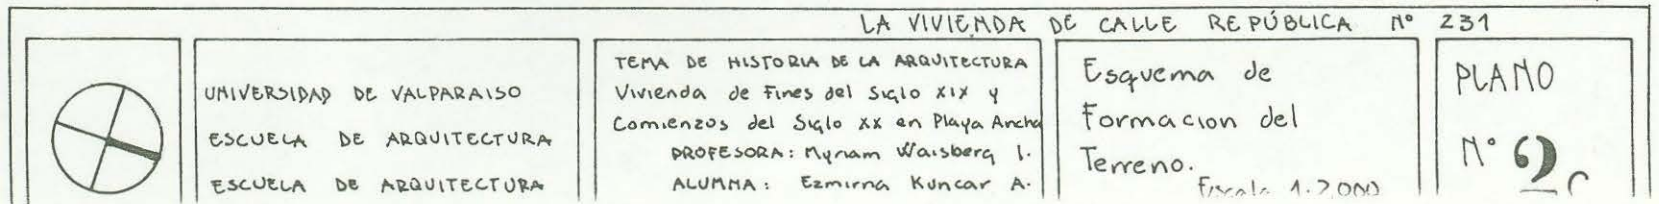 LA VIVIENDA DE CALLE REPÚBLICA Nº 231
UNIVERSIDAD DE VALPARAISO
ESCUELA DE ARQUITECTURA
ESCUELA DE ARQUITECTURA
TEMA DE HISTORIA DE LA ARQUITECTURA
Vivienda de Fines del Siglo XIX y
Comienzos del Siglo XX en Playa Ancha
PROFESORA: Myriam Waisberg I.
ALUMNA: Ezmirna Kuncar A.
Esquema de
Formacion del
Terreno.
Escala 1:2000
PLANO
Nº 2